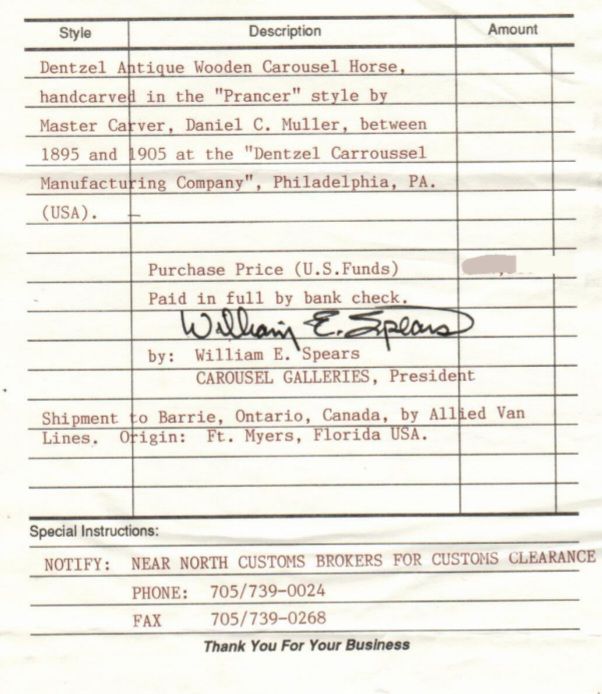 Style Description Amount
Dentzel Antique Wooden Carousel Horse,
handcarved in the "Prancer" style by
Master Carver, Daniel C. Muller, between
1895 and 1905 at the "Dentzel Carroussel
Manufacturing Company", Philadelphia, PA.
(USA). –
Purchase Price (U.S.Funds)
Paid in full by bank check.
William E. Spears
by: William E. Spears
CAROUSEL GALLERIES, President
Shipment to Barrie, Ontario, Canada, by Allied Van
Lines. Origin: Ft. Myers, Florida USA.
Special Instructions:
NOTIFY: NEAR NORTH CUSTOMS BROKERS FOR CUSTOMS CLEARANCE
PHONE: 705/739-0024
FAX 705/739-0268
Thank You For Your Business